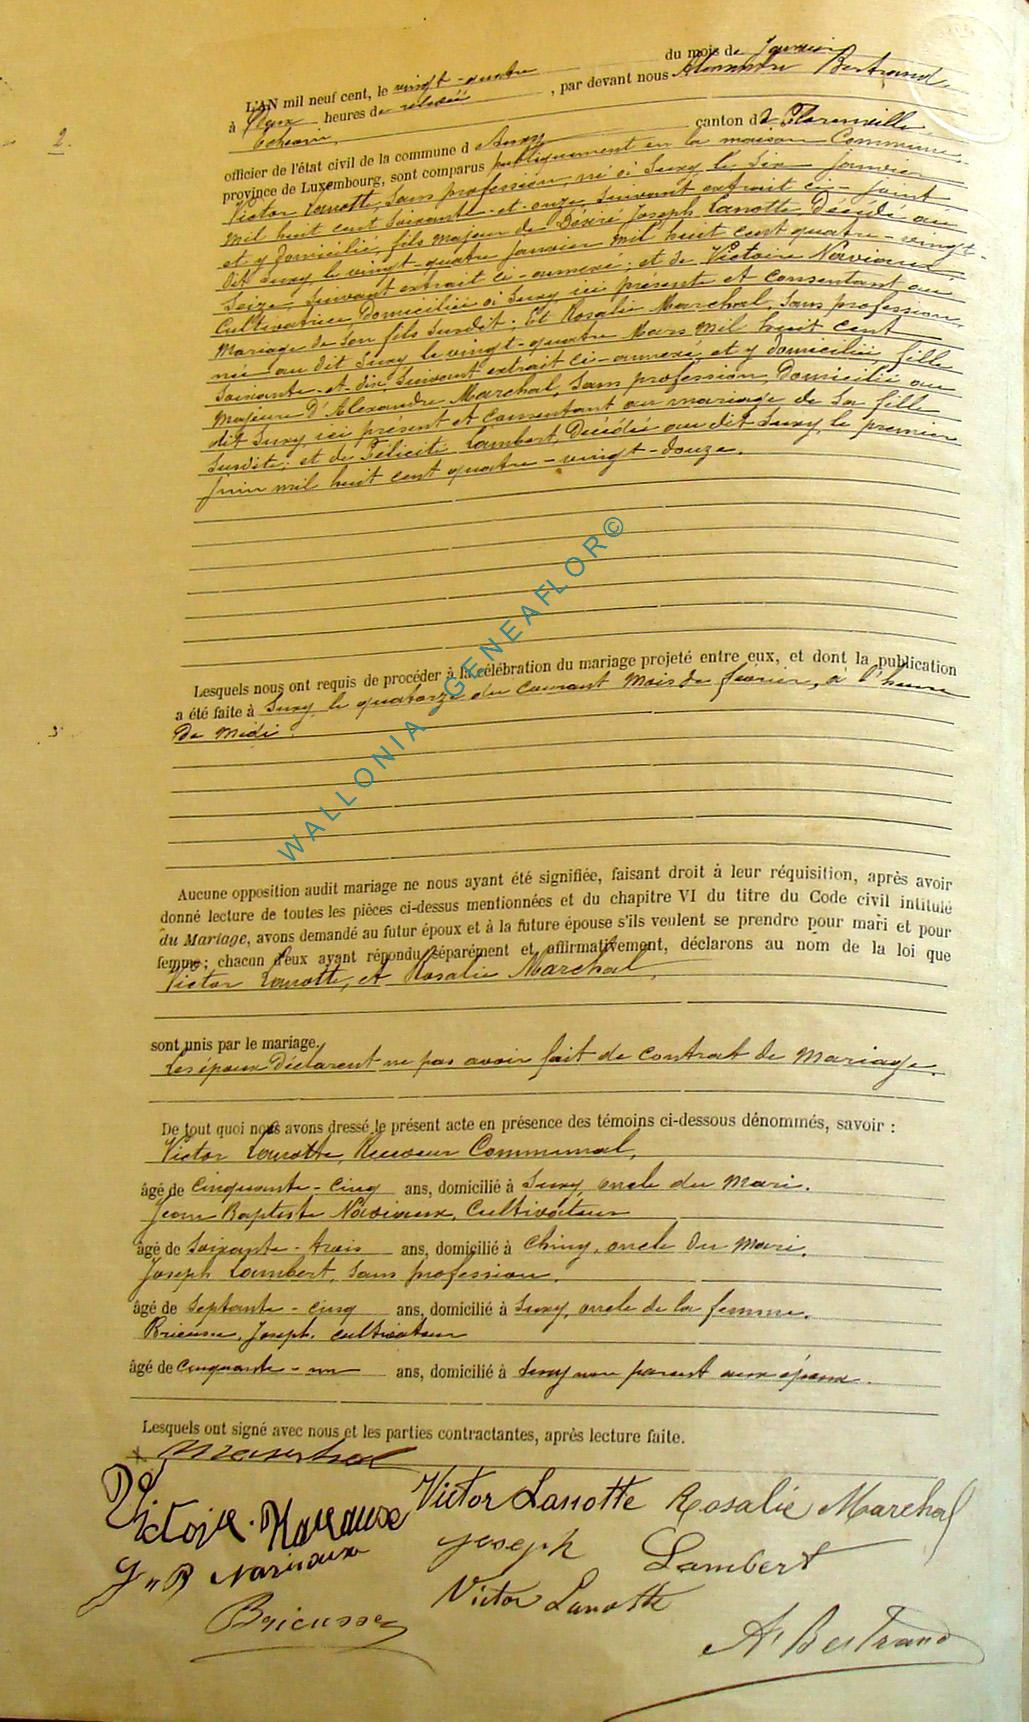 2.
L'AN mil neuf cent, le vingt-quatre du mois de Janvier
à Deux heures de relevée, par devant nous Alexandre Bertrand
Echevin
officier de l'état civil de la commune d Suxy canton de Florenville
province de Luxembourg, sont comparus publiquement en la maison Commune,
Victor Lanotte, Sans profession, né à Suxy le Six Janvier
mil huit cent Soixante-et-onze, Suivant extrait ci-joint
et y domicilié, fils majeur de Désiré Joseph Lanotte, Décédé au
dit Suxy le vingt-quatre Janvier mil huit cent quatre-vingt-
Seize, Suivant extrait ci-annexé; et de Victoire Naviaux,
Cultivatrice, Domiciliée à Suxy, ici présente et consentant au
mariage de Son fils Susdit; Et Rosalie Marchal, Sans profession,
née au dit Suxy le vingt-quatre Mars mil huit cent
Soixante-et-dix, Suivant extrait ci-annexé, et y domiciliée, fille
majeure D'Alexandre Marchal, Sans profession, Domicilié au
dit Suxy, ici présent et Consentant au mariage de Sa fille
Susdite; et de Félicité Lambert, Décédée au dit Suxy, le premier
Juin mil huit cent quatre-vingt-douze.
Lesquels nous ont requis de procéder à la célébration du mariage projeté entre eux, et dont la publication
a été faite à Suxy, le quatorze du courant mois de février, à l'heure
De Midi.
Aucune opposition audit mariage ne nous ayant été signifiée, faisant droit à leur réquisition, après avoir
donné lecture de toutes les pièces ci-dessus mentionnées et du chapitre VI du titre du Code civil intitulé
du Mariage, avons demandé au futur époux et à la future épouse s'ils veulent se prendre pour mari et pour
femme; chacun d'eux ayant répondu séparément et affirmativement, déclarons au nom de la loi que
Victor Lanotte, et Rosalie Marchal,
sont unis par le mariage.
Les époux Déclarent ne pas avoir fait de contrat de mariage.
De tout quoi nous avons dressé le présent acte en présence des témoins ci-dessous dénommés, savoir :
Victor Lanotte, Receveur Communal,
âgé de Cinquante-Cinq ans, domicilié à Suxy, oncle du Mari.
Jean Baptiste Naviaux, Cultivateur
âgé de Soixante-trois ans, domicilié à Chiny, oncle Du Mari.
Joseph Lambert, Sans profession.
âgé de Septante-cinq ans, domicilié à Suxy, oncle de la femme.
Bricusse, Joseph, cultivateur
âgé de Cinquante-un ans, domicilié à Suxy non parent aux époux.
Lesquels ont signé avec nous et les parties contractantes, après lecture faite.
Marchal
Victor Lanotte Rosalie Marchal
Victoire Navaux
Joseph Lambert
J n B Naviaux
Victor Lanotte
Bricusse
A. Bertrand
WALLONIA GENEAFLOR©